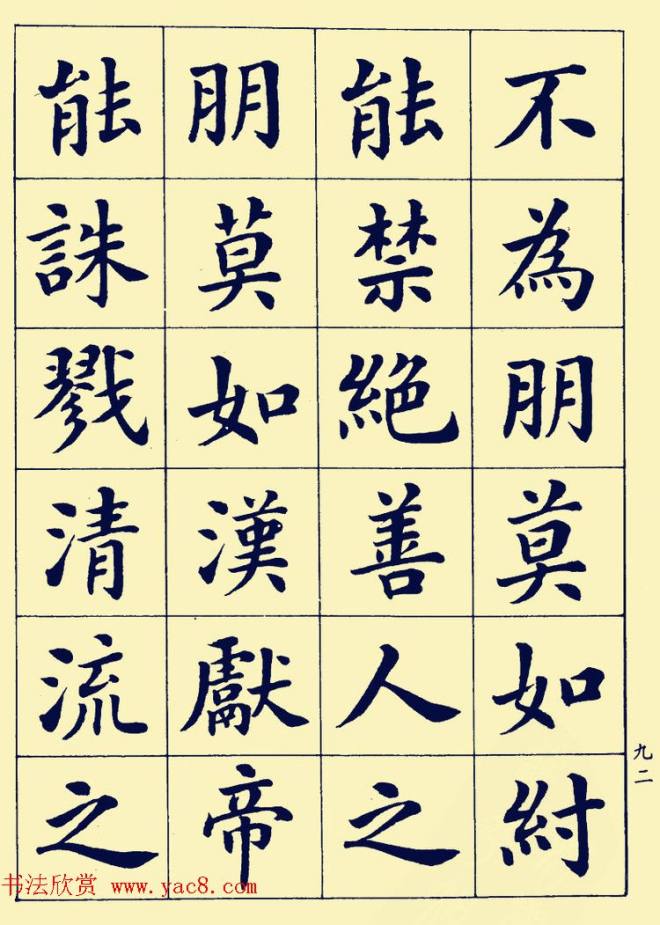 不為朋莫如紂
能禁絶善人之
朋莫如漢獻帝
能誅戮清流之
九二
书法欣赏 www.yac8.com